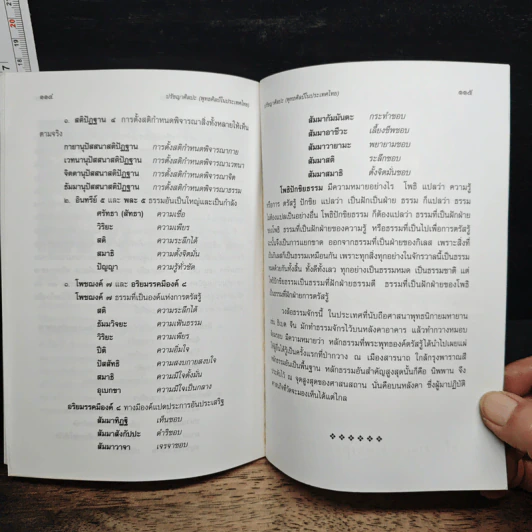 ๑๑๔
ปรัชญาศิลปะ (พุทธศิลป์ในประเทศไทย)
๑. สติปัฏฐาน ๔ การตั้งสติกำหนดพิจารณาสิ่งทั้งหลายให้เห็น
ตามจริง
กายานุปัสสนาสติปัฏฐาน การตั้งสติกำหนดพิจารณากาย
เวทนานุปัสสนาสติปัฏฐาน การตั้งสติกำหนดพิจารณาเวทนา
จิตตานุปัสสนาสติปัฏฐาน การตั้งสติกำหนดพิจารณาจิต
ธัมมานุปัสสนาสติปัฏฐาน การตั้งสติกำหนดพิจารณาธรรม
๒. อินทรีย์ ๕ และ พละ ๕ ธรรมอันเป็นใหญ่และเป็นกำลัง
ศรัทธา (สัทธา) ความเชื่อ
วิริยะ ความเพียร
สติ ความระลึกได้
สมาธิ ความตั้งจิตมั่น
ปัญญา ความรู้ทั่วชัด
๓. โพชฌงค์ ๗ และ อริยมรรคมีองค์ ๘
โพชฌงค์ ๗ ธรรมที่เป็นองค์แห่งการตรัสรู้
สติ ความระลึกได้
ธัมมวิจยะ ความเฟ้นธรรม
วิริยะ ความเพียร
ปีติ ความอิ่มใจ
ปัสสัทธิ ความสงบกายสงบใจ
สมาธิ ความมีใจตั้งมั่น
อุเบกขา ความมีใจเป็นกลาง
อริยมรรคมีองค์ ๘ ทางมีองค์แปดประการอันประเสริฐ
สัมมาทิฏฐิ เห็นชอบ
สัมมาสังกัปปะ ดำริชอบ
สัมมาวาจา เจรจาชอบ
ปรัชญาศิลปะ (พุทธศิลป์ในประเทศไทย)
๑๑๕
สัมมากัมมันตะ กระทำชอบ
สัมมาอาชีวะ เลี้ยงชีพชอบ
สัมมาวายามะ พยายามชอบ
สัมมาสติ ระลึกชอบ
สัมมาสมาธิ ตั้งจิตมั่นชอบ
โพธิปักขิยธรรม มีความหมายอย่างไร โพธิ แปลว่า ความรู้
หรือการ ตรัสรู้ ปักขิย แปลว่า เป็นฝักเป็นฝ่าย ธรรม ก็แปลว่า ธรรม
แปลเป็นอย่างอื่น โพธิปักขิยธรรม ก็ต้องแปลว่า ธรรมที่เป็นฝักฝ่าย
ของโพธิ ธรรมที่เป็นฝักฝ่ายของความรู้ หรือธรรมที่เป็นไปเพื่อการตรัสรู้
จึงเป็นการแยกขาด ออกจากธรรมที่เป็นฝ่ายของกิเลส เพราะสิ่งที่
เป็นกิเลสก็เป็นธรรมเหมือนกัน เพราะทุกสิ่งทุกอย่างในจักรวาลนี้เป็นธรรม
ด้วยกันทั้งสิ้น ทั้งดีทั้งเลว ทุกอย่างเป็นธรรมหมด เป็นธรรมชาติ แต่
โพธิปักขิยธรรมเป็นธรรมที่ฝักฝ่ายธรรมดี ธรรมที่เป็นฝักฝ่ายของโพธิ
ธรรมที่เป็นฝักฝ่ายการตรัสรู้
วงล้อธรรมจักรนี้ ในประเทศที่นับถือศาสนาพุทธนิกายมหายาน
ธิเบต จีน มักทำธรรมจักรไว้บนหลังคาอาคาร แล้วทำกวางหมอบ
มีความหมายว่า หลักธรรมที่พระพุทธองค์ตรัสรู้ได้นำไปเผยแผ่
เป็นครั้งแรกที่ป่ากวาง ณ เมืองสารนาถ ใกล้กรุงพาราณสี
เป็นพื้นฐาน หลักธรรมอันสำคัญสูงสุดนั้นก็คือ นิพพาน จึง
ณ จุดสูงสุดของศาสนสถาน นั่นคือบนหลังคา ซึ่งผู้มาปฏิบัติ
จะมองเห็นได้แต่ไกล